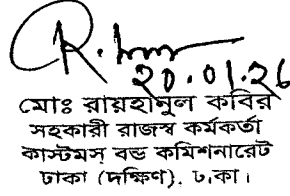 ২০.০১.২৬
মোঃ রায়হানুল কবির
সহকারী রাজস্ব কর্মকর্তা
কাস্টমস্ বন্ড কমিশনারেট
ঢাকা (দক্ষিণ), ঢাকা।